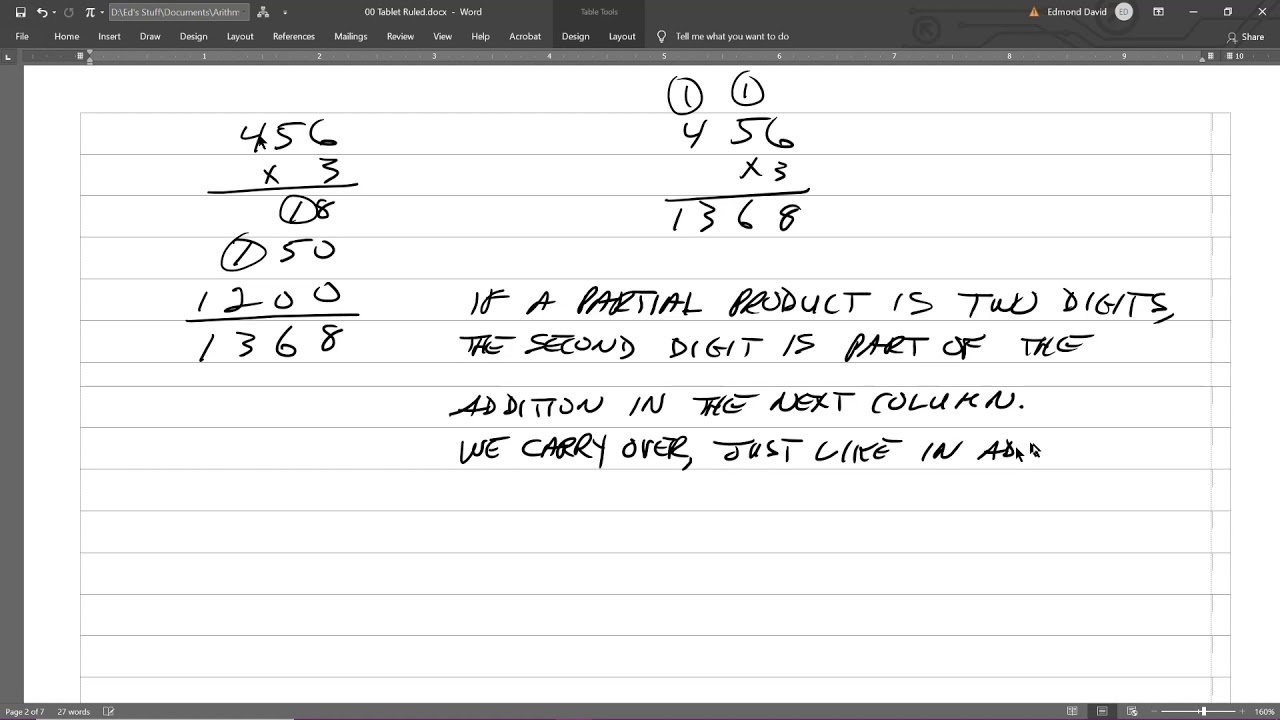 D:\Ed's Stuff\Documents\Arithm
00 Tablet Ruled.docx - Word
Table Tools
Edmond David
ED
File Home Insert Draw Design Layout References Mailings Review View Help Acrobat Design Layout Tell me what you want to do Share
1 2 3 4 5 6 7 8 9 10
1 1
456 456
x 3 x3
18 1368
150
1200 IF A PARTIAL PRODUCT IS TWO DIGITS,
1368 THE SECOND DIGIT IS PART OF THE
ADDITION IN THE NEXT COLUMN.
WE CARRY OVER, JUST LIKE IN AD
Page 2 of 7 27 words 160%